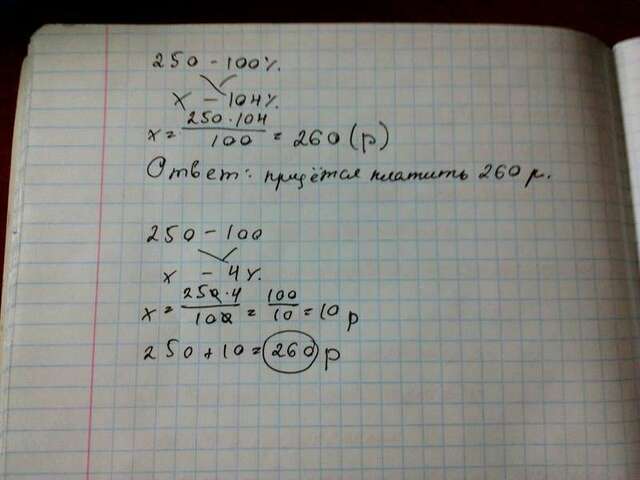 250 - 100%.
x - 104%.
x = 250·104/100 = 260 (р)
Ответ: придётся платить 260 р.
250 - 100
x - 4%.
x = 250·4/100 = 100/10 = 10 р
250 + 10 = 260 р